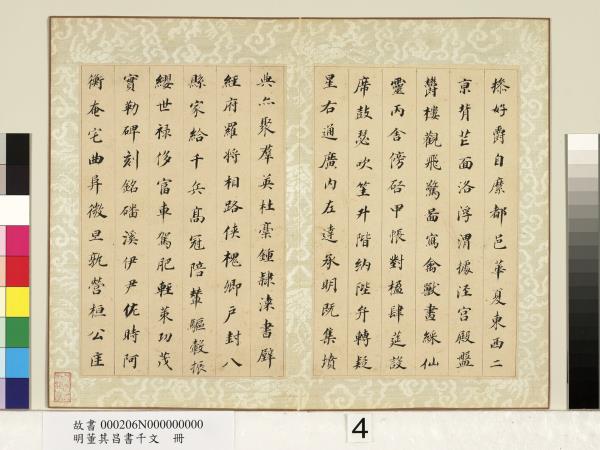 操好爵自縻都邑華夏東西二
京背芒面洛浮渭據涇宮殿盤
鬱樓觀飛驚圖寫禽獸畫綵仙
靈丙舍傍啓甲帳對楹肆筵設
席鼓瑟吹笙升階納陛弁轉疑
星右通廣內左達承明既集墳
典亦聚羣英杜稾鍾隸漆書壁
經府羅將相路俠槐卿戶封八
縣家給千兵高冠陪輦驅轂振
纓世祿侈富車駕肥輕策功茂
實勒碑刻銘磻溪伊尹佐時阿
衡奄宅曲阜微旦孰營桓公匡
故書 000206N000000000
明董其昌書千文 冊
4